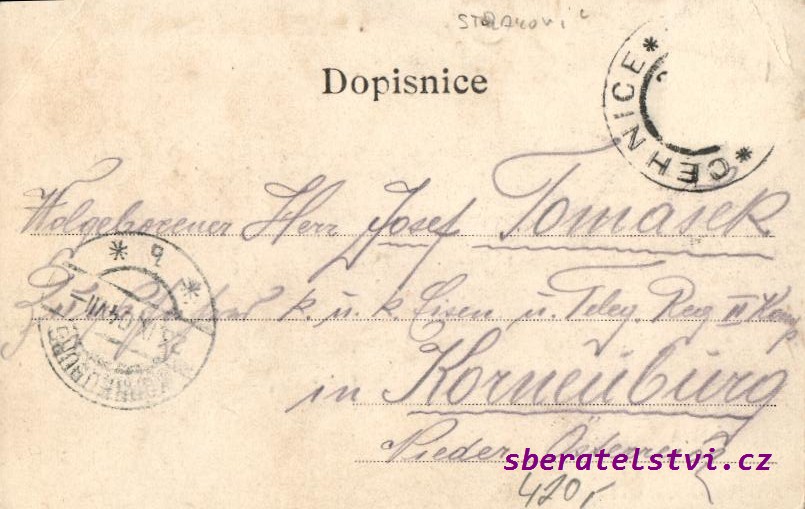 Dopisnice
CEHNICE
Wolgeborener Herr Josef Tomasek
k. u. k. Eisen. u. Teleg. Reg II Komp
in Korneuburg
Nieder Österreich
KORNEUBURG
sberatelstvi.cz
420,-